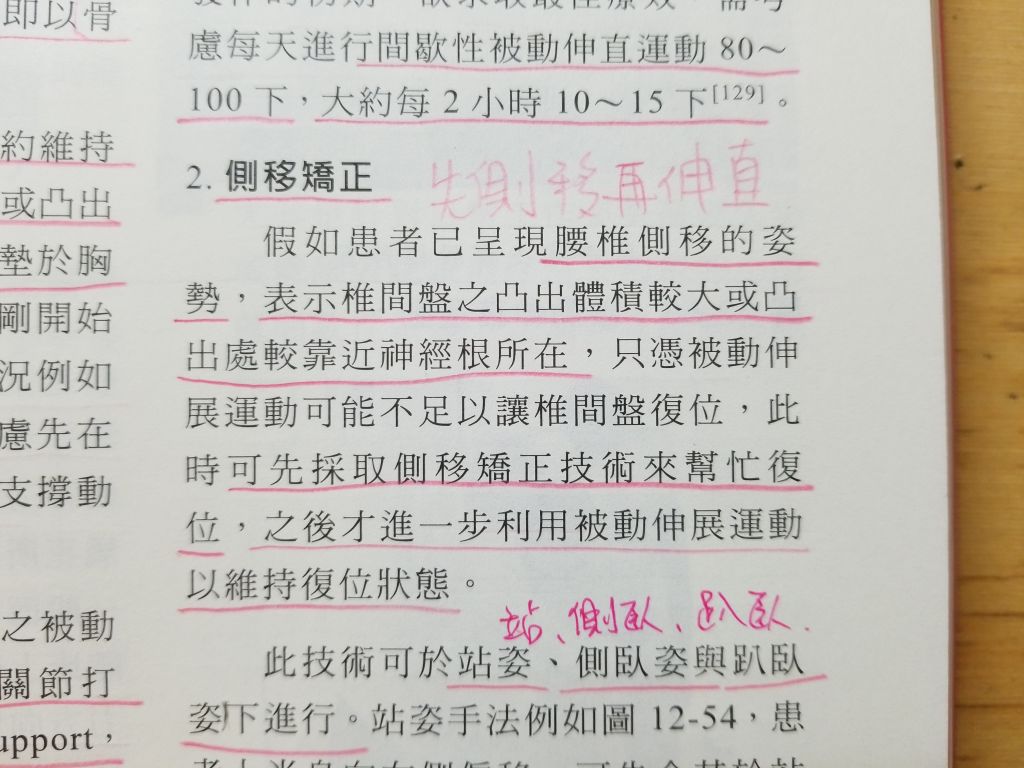 即以骨
約維持
或凸出
墊於胸
剛開始
況例如
慮先在
支撐動
之被動
關節打
upport，
慮每天進行間歇性被動伸直運動 80～
100 下，大約每 2 小時 10～15 下[129]。
2. 側移矯正 先側移再伸直
假如患者已呈現腰椎側移的姿
勢，表示椎間盤之凸出體積較大或凸
出處較靠近神經根所在，只憑被動伸
展運動可能不足以讓椎間盤復位，此
時可先採取側移矯正技術來幫忙復
位，之後才進一步利用被動伸展運動
以維持復位狀態。
站、側臥、趴臥.
此技術可於站姿、側臥姿與趴臥
姿下進行。站姿手法例如圖 12-54，患